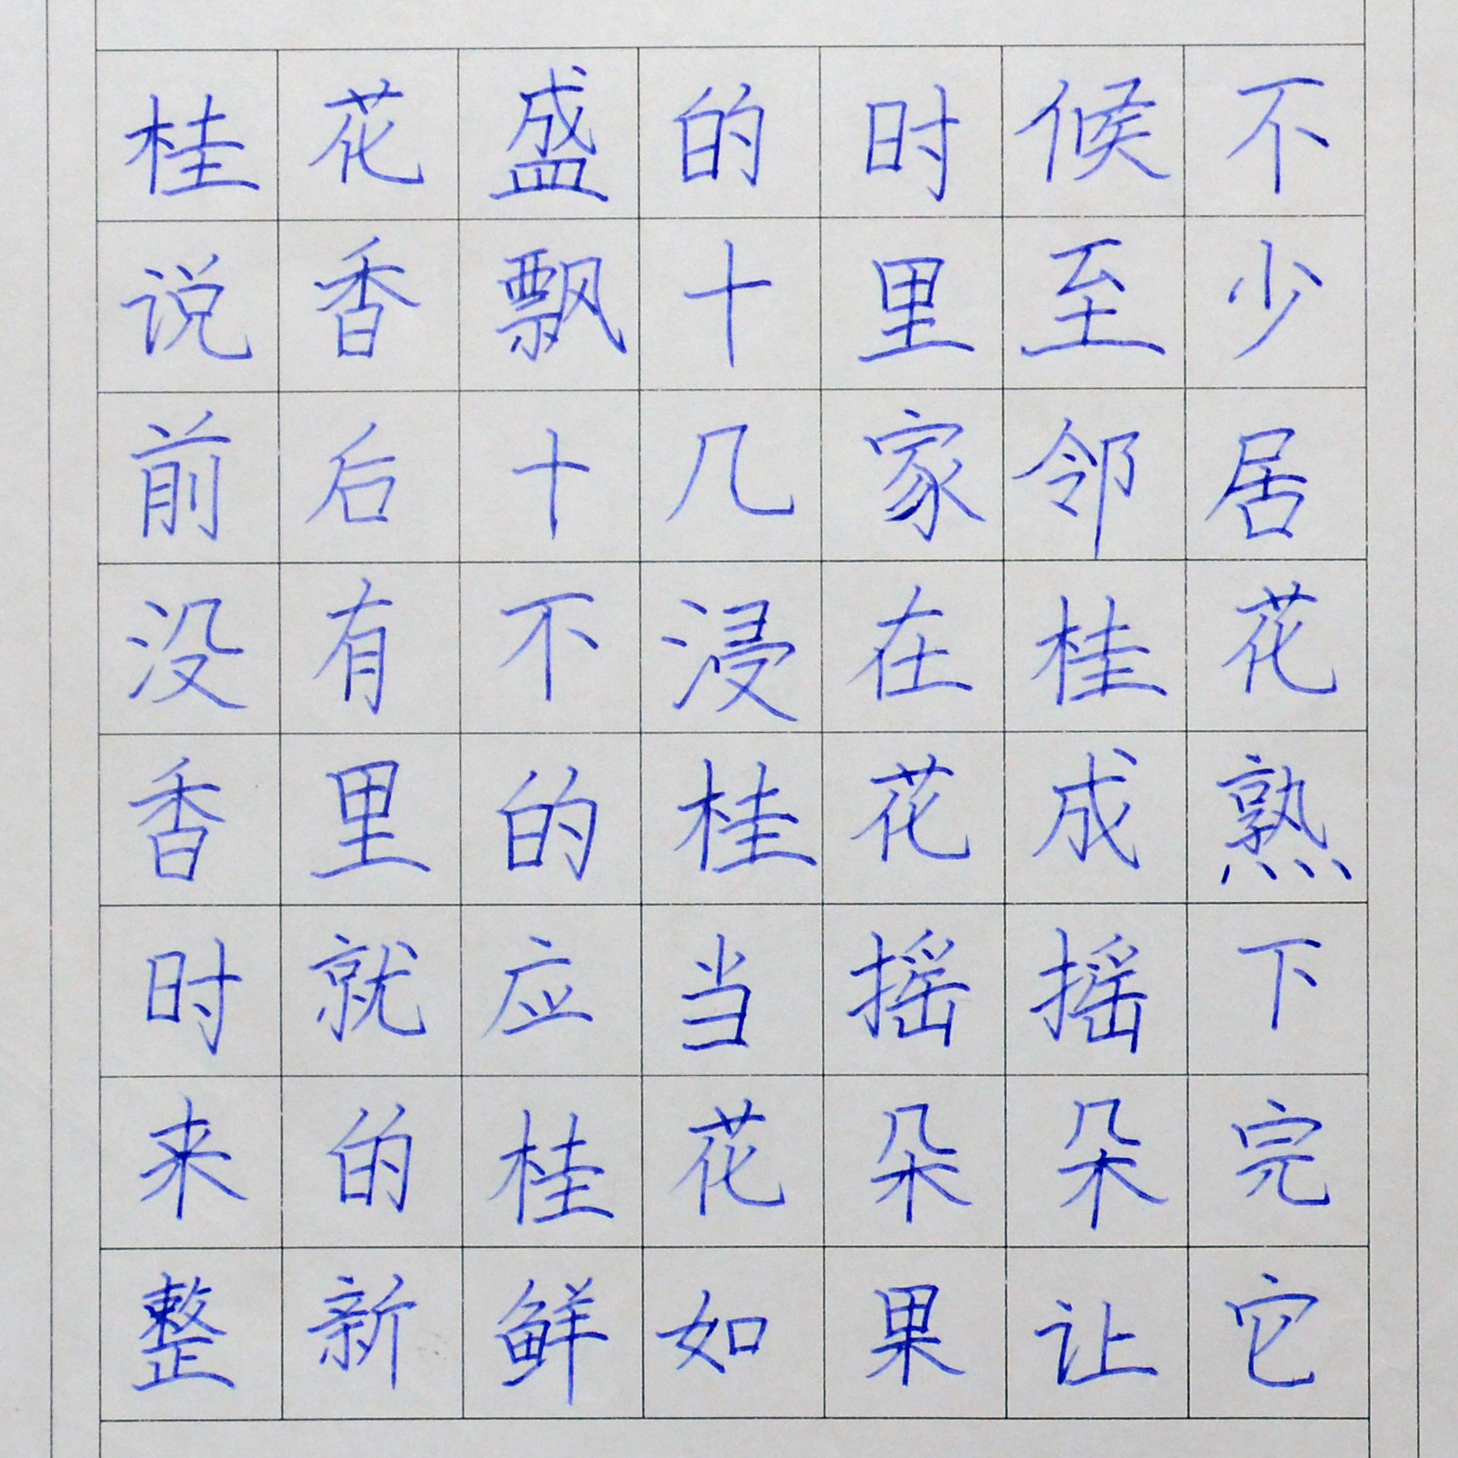 桂花盛的时候不
说香飘十里至少
前后十几家邻居
没有不浸在桂花
香里的桂花成熟
时就应当摇摇下
来的桂花朵朵完
整新鲜如果让它